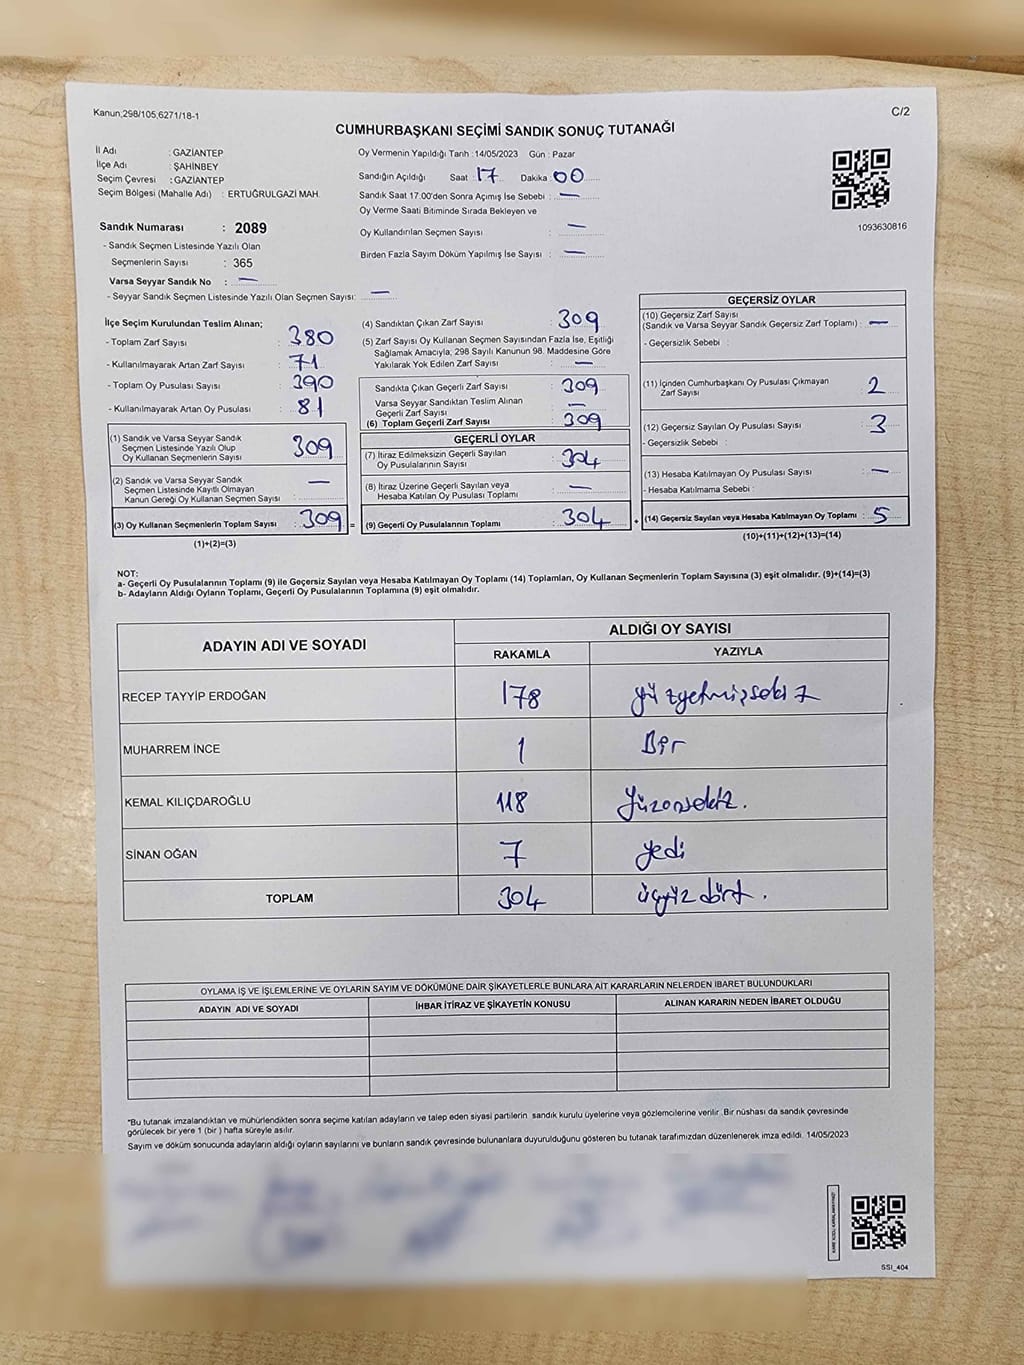 Kanun,298/105,6271/18-1
C/2
CUMHURBAŞKANI SEÇİMİ SANDIK SONUÇ TUTANAĞI
İl Adı : GAZİANTEP
İlçe Adı : ŞAHİNBEY
Seçim Çevresi : GAZİANTEP
Seçim Bölgesi (Mahalle Adı) : ERTUĞRULGAZİ MAH.
Sandık Numarası : 2089
- Sandık Seçmen Listesinde Yazılı Olan
Seçmenlerin Sayısı : 365
Varsa Seyyar Sandık No : —
- Seyyar Sandık Seçmen Listesinde Yazılı Olan Seçmen Sayısı: —
Oy Vermenin Yapıldığı Tarih :14/05/2023 Gün : Pazar
Sandığın Açıldığı Saat : 17 Dakika : 00
Sandık Saat 17.00'den Sonra Açımış İse Sebebi : —
Oy Verme Saati Bitiminde Sırada Bekleyen ve
Oy Kullandırılan Seçmen Sayısı : —
Birden Fazla Sayım Döküm Yapılmış İse Sayısı : —
1093630816
İlçe Seçim Kurulundan Teslim Alınan;
- Toplam Zarf Sayısı : 380
- Kullanılmayarak Artan Zarf Sayısı : 71
- Toplam Oy Pusulası Sayısı : 390
- Kullanılmayarak Artan Oy Pusulası : 81
(1) Sandık ve Varsa Seyyar Sandık
Seçmen Listesinde Yazılı Olup
Oy Kullanan Seçmenlerin Sayısı : 309
(2) Sandık ve Varsa Seyyar Sandık
Seçmen Listesinde Kayıtlı Olmayan
Kanun Gereği Oy Kullanan Seçmen Sayısı : —
(3) Oy Kullanan Seçmenlerin Toplam Sayısı : 309 =
(1)+(2)=(3)
(4) Sandıktan Çıkan Zarf Sayısı : 309
(5) Zarf Sayısı Oy Kullanan Seçmen Sayısından Fazla İse, Eşitliği
Sağlamak Amacıyla; 298 Sayılı Kanunun 98. Maddesine Göre
Yakılarak Yok Edilen Zarf Sayısı : —
Sandıkta Çıkan Geçerli Zarf Sayısı : 309
Varsa Seyyar Sandıktan Teslim Alınan
Geçerli Zarf Sayısı : —
(6) Toplam Geçerli Zarf Sayısı : 309
GEÇERLİ OYLAR
(7) İtiraz Edilmeksizin Geçerli Sayılan
Oy Pusulalarının Sayısı : 304
(8) İtiraz Üzerine Geçerli Sayılan veya
Hesaba Katılan Oy Pusulası Toplamı : —
(9) Geçerli Oy Pusulalarının Toplamı : 304 +
GEÇERSİZ OYLAR
(10) Geçersiz Zarf Sayısı
(Sandık ve Varsa Seyyar Sandık Geçersiz Zarf Toplamı) : —
- Geçersizlik Sebebi :
(11) İçinden Cumhurbaşkanı Oy Pusulası Çıkmayan
Zarf Sayısı : 2
(12) Geçersiz Sayılan Oy Pusulası Sayısı : 3
- Geçersizlik Sebebi :
(13) Hesaba Katılmayan Oy Pusulası Sayısı : —
- Hesaba Katılmama Sebebi :
(14) Geçersiz Sayılan veya Hesaba Katılmayan Oy Toplamı : 5
(10)+(11)+(12)+(13)=(14)
NOT:
a- Geçerli Oy Pusulalarının Toplamı (9) ile Geçersiz Sayılan veya Hesaba Katılmayan Oy Toplamı (14) Toplamları, Oy Kullanan Seçmenlerin Toplam Sayısına (3) eşit olmalıdır. (9)+(14)=(3)
b- Adayların Aldığı Oyların Toplamı, Geçerli Oy Pusulalarının Toplamına (9) eşit olmalıdır.
ADAYIN ADI VE SOYADI ALDIĞI OY SAYISI
RAKAMLA YAZIYLA
RECEP TAYYİP ERDOĞAN 178 yüzyetmişsekiz
MUHARREM İNCE 1 Bir
KEMAL KILIÇDAROĞLU 118 Yüzonsekiz.
SİNAN OĞAN 7 yedi
TOPLAM 304 üçyüz dört.
OYLAMA İŞ VE İŞLEMLERİNE VE OYLARIN SAYIM VE DÖKÜMÜNE DAİR ŞİKAYETLERLE BUNLARA AİT KARARLARIN NELERDEN İBARET BULUNDUKLARI
ADAYIN ADI VE SOYADI İHBAR İTİRAZ VE ŞİKAYETİN KONUSU ALINAN KARARIN NEDEN İBARET OLDUĞU
"Bu tutanak imzalandıktan ve mühürlendikten sonra seçime katılan adayların ve talep eden siyasi partilerin sandık kurulu üyelerine veya gözlemcilerine verilir. Bir nüshası da sandık çevresinde
görülecek bir yere 1 (bir) hafta süreyle asılır.
Sayım ve döküm sonucunda adayların aldığı oyların sayılarını ve bunların sandık çevresinde bulunanlara duyurulduğunu gösteren bu tutanak tarafımızdan düzenlenerek imza edildi. 14/05/2023
SSI_404